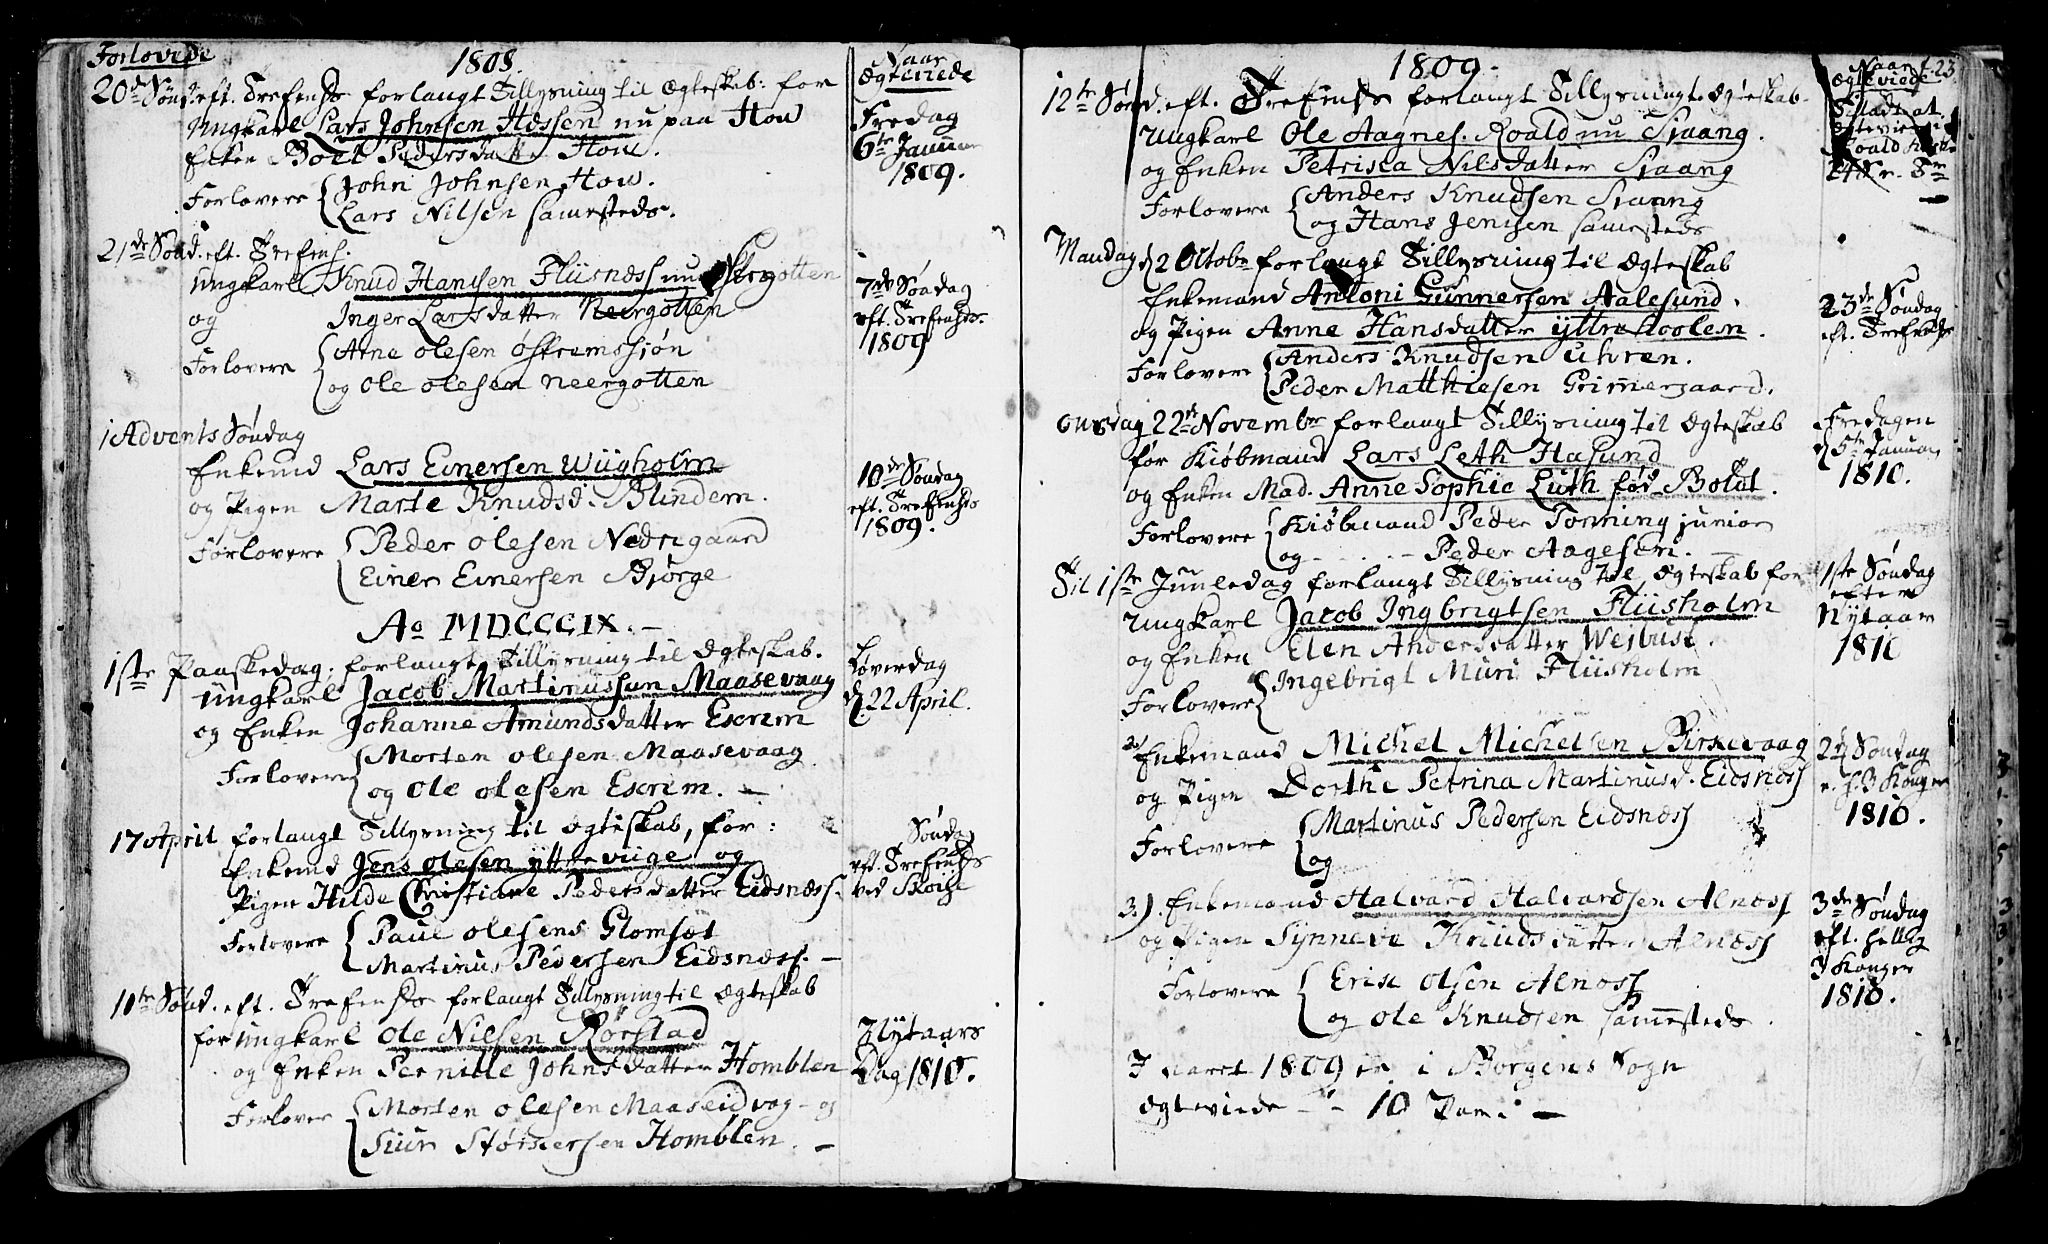 Forlovede
1808.
Naar
Ægteviede
20de Sønd. eft. Trefts forlangt Tillysning til Ægteskab: for
Ungkarl Lars Johnsen Hessen nu paa How
Enken Boel Pedersdatter How.
Forlovere John Johnsen How.
Lars Nilsen samesteds.
Fredag
6te Januar
1809.
21de Sønd. eft. Trefens.
Ungkarl Knud Hansen Fliisness nu
og Inger Larsdatter Neergotten
Forlovere Arne Olesen
og Ole Olesen Neergotten
7de Søndag
eft. Trefends.
1809
1 Advents Søndag
Enkemd Lars Einersen Wiigholm
og Pigen Marte Knudsd. Blindem.
Forlovere Peder Olesen Nedregaard
Einer Einersen Bjørge
10de Søndag
eft. Trefends
1809.
Ao MDCCCIX. –
1ste Paaskedag. forlangt Tillysning til Ægteskab.
Ungkarl Jacob Martinussun Maasevaag
og Enken Johanne Amundsdatter Exrem
Forlovere Morten Olesen Maasevaag
og Ole Olesen Exrem. –
Løverdag
d. 22 April.
17 April forlangt Tillysning til Ægteskab, for:
Enkemd Jens Olesen Yttreviige og
Pigen Hilde Christiane Pedersdatter Eidsness.
Forlovere Paul Olesens Glomset
Martinus Pedersen Eidsness. –
Søndag
eft. Trefends
ved
10te Sønd. eft. Trefends forlangt Tillysning til Ægteskab
for Ungkarl Ole Nielsen Rørstad
og Enken Pernille Johnsdatter Homblen
Forlover Morten Olesen Maaseidvag – og
Siur Homblen. –
Nytaars
Dag 1810.
1809.
Naar
23
Ægteviede
12te Sønd. eft. Trefends forlangt Tillysning t. Ægteskab.
Ungkarl Ole Aagnes. Roald nu Staang.
og Enken Petrisca Nilsdatter Staang
Forlovere Anders Knudsen Staang
og Hans Jensen samesteds
Tilladt at
Ægtevies i
Roald
Mandag d. 2 Octobr forlangt Tillysning til Ægteskab
Enkemand Antoni Gunnersen Aalesund.
og Pigen Anne Hansdatter Yttre Hoolen.
Forlovere Anders Knudsen Uhren.
Peder Matthiesen Grimergaard.
23de Søndag
eft. Trefends
Onsdag 22de Novembr forlangt Tillysning til Ægteskab
før Kiøbmand Lars Leth Hasund
og Enken Mad. Anne Sophie Luth fød Boldt.
Forlovere Kiøbmand Peder Tonning junior
og - . . . - Peder Aagesen. –
Fredagen
d. 5te Januar
1810.
Til 1ste Juuledag forlangt Tillysning til Ægteskab for
Ungkarl Jacob Ingbrigtsen Fliisholm
og Enken Elen Andersdatter Weibust.
Forlovere Ingebrigt Muri Fliisholm
1ste Søndag
efter
Nytaar
1810
2.) Enkemand Michel Michelsen Birkevaag
og Pigen Dorthe Petrina Martinusd. Eidsness
Forlovere Martinus Pedersen Eidsness
og
2d Søndag
e. h. 3 Konger
1810.
3.) Enkemand Halvard Halvardsen Alness
og Pigen Synneve Knudsdatter Alness
Forlovere Erik Olsen Alness
og Ole Knudsen samesteds.
3de Søndag
eft. hellig
3 Konger
1810.
I aaret 1809 er i Borgens Sogn
Ægteviede – " – 10 Par. –